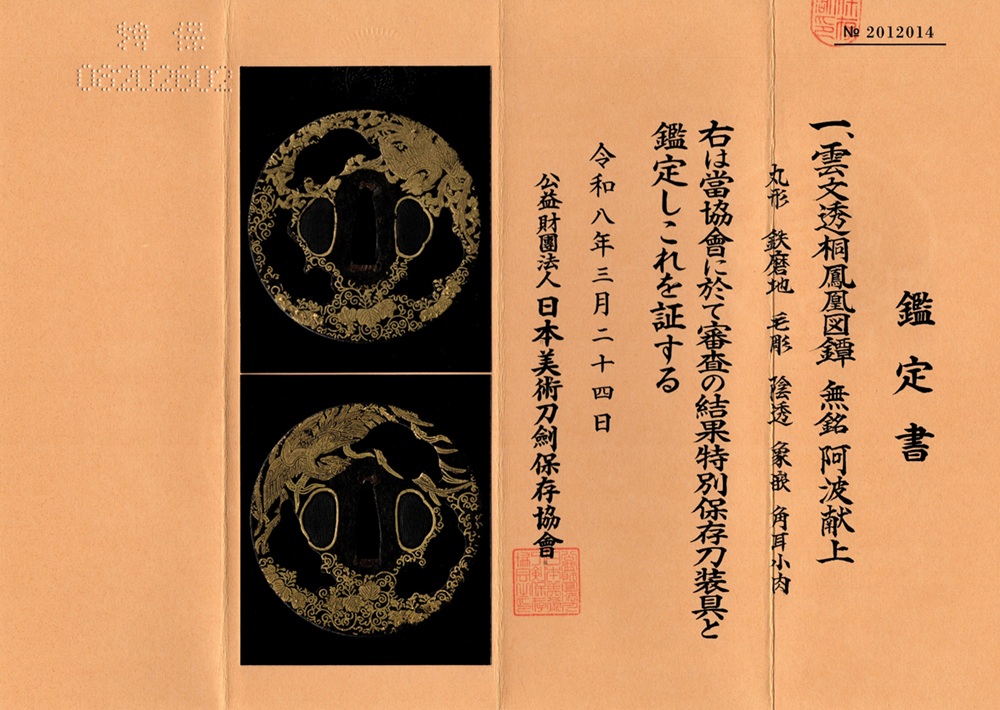 № 2012014
鑑定書
一、雲文透桐鳳凰図鐔 無銘 阿波献上
丸形 鉄磨地 毛彫 陰透 象嵌 角耳小肉
右は當協會に於て審査の結果特別保存刀装具と
鑑定しこれを証する
令和八年三月二十四日
公益財團法人 日本美術刀劍保存協會
特保
08202602